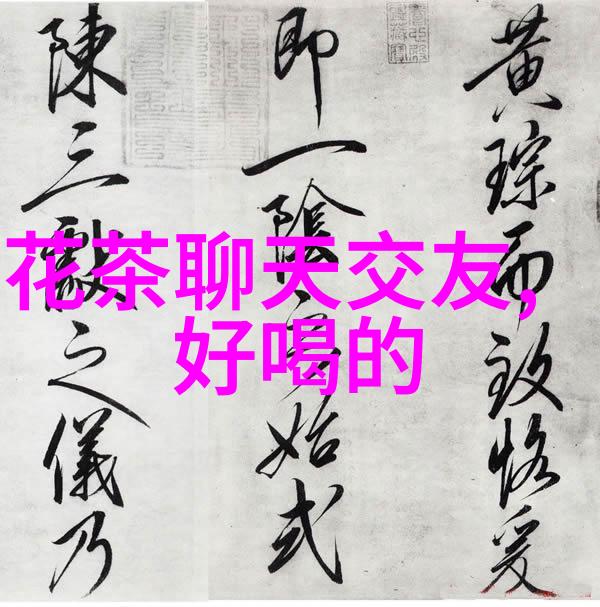 花茶聊天交友,
好喝的
黄琮而致恪爰
即一陰始式
陳三獻之儀乃